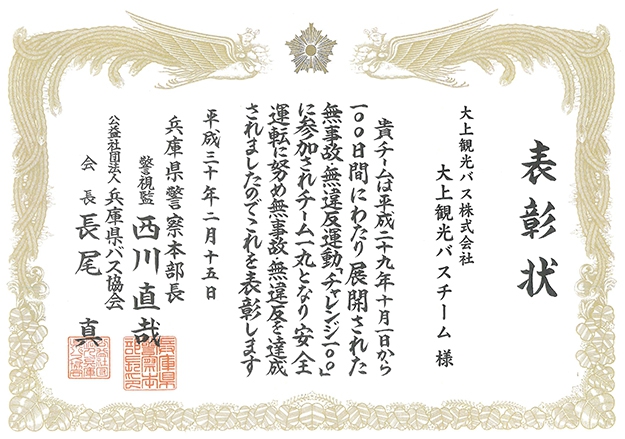 表彰状
大上観光バス株式会社
大上観光バスチーム 様
貴チームは平成二十九年十月一日から
一〇〇日間にわたり展開された
無事故・無違反運動「チャレンジ一〇〇」
に参加されチーム一丸となり安全
運転に努め無事故・無違反を達成
されましたのでこれを表彰します
平成三十年二月十五日
兵庫県警察本部長
警視監 西川直哉
公益社団法人 兵庫県バス協会
会長 長尾 真